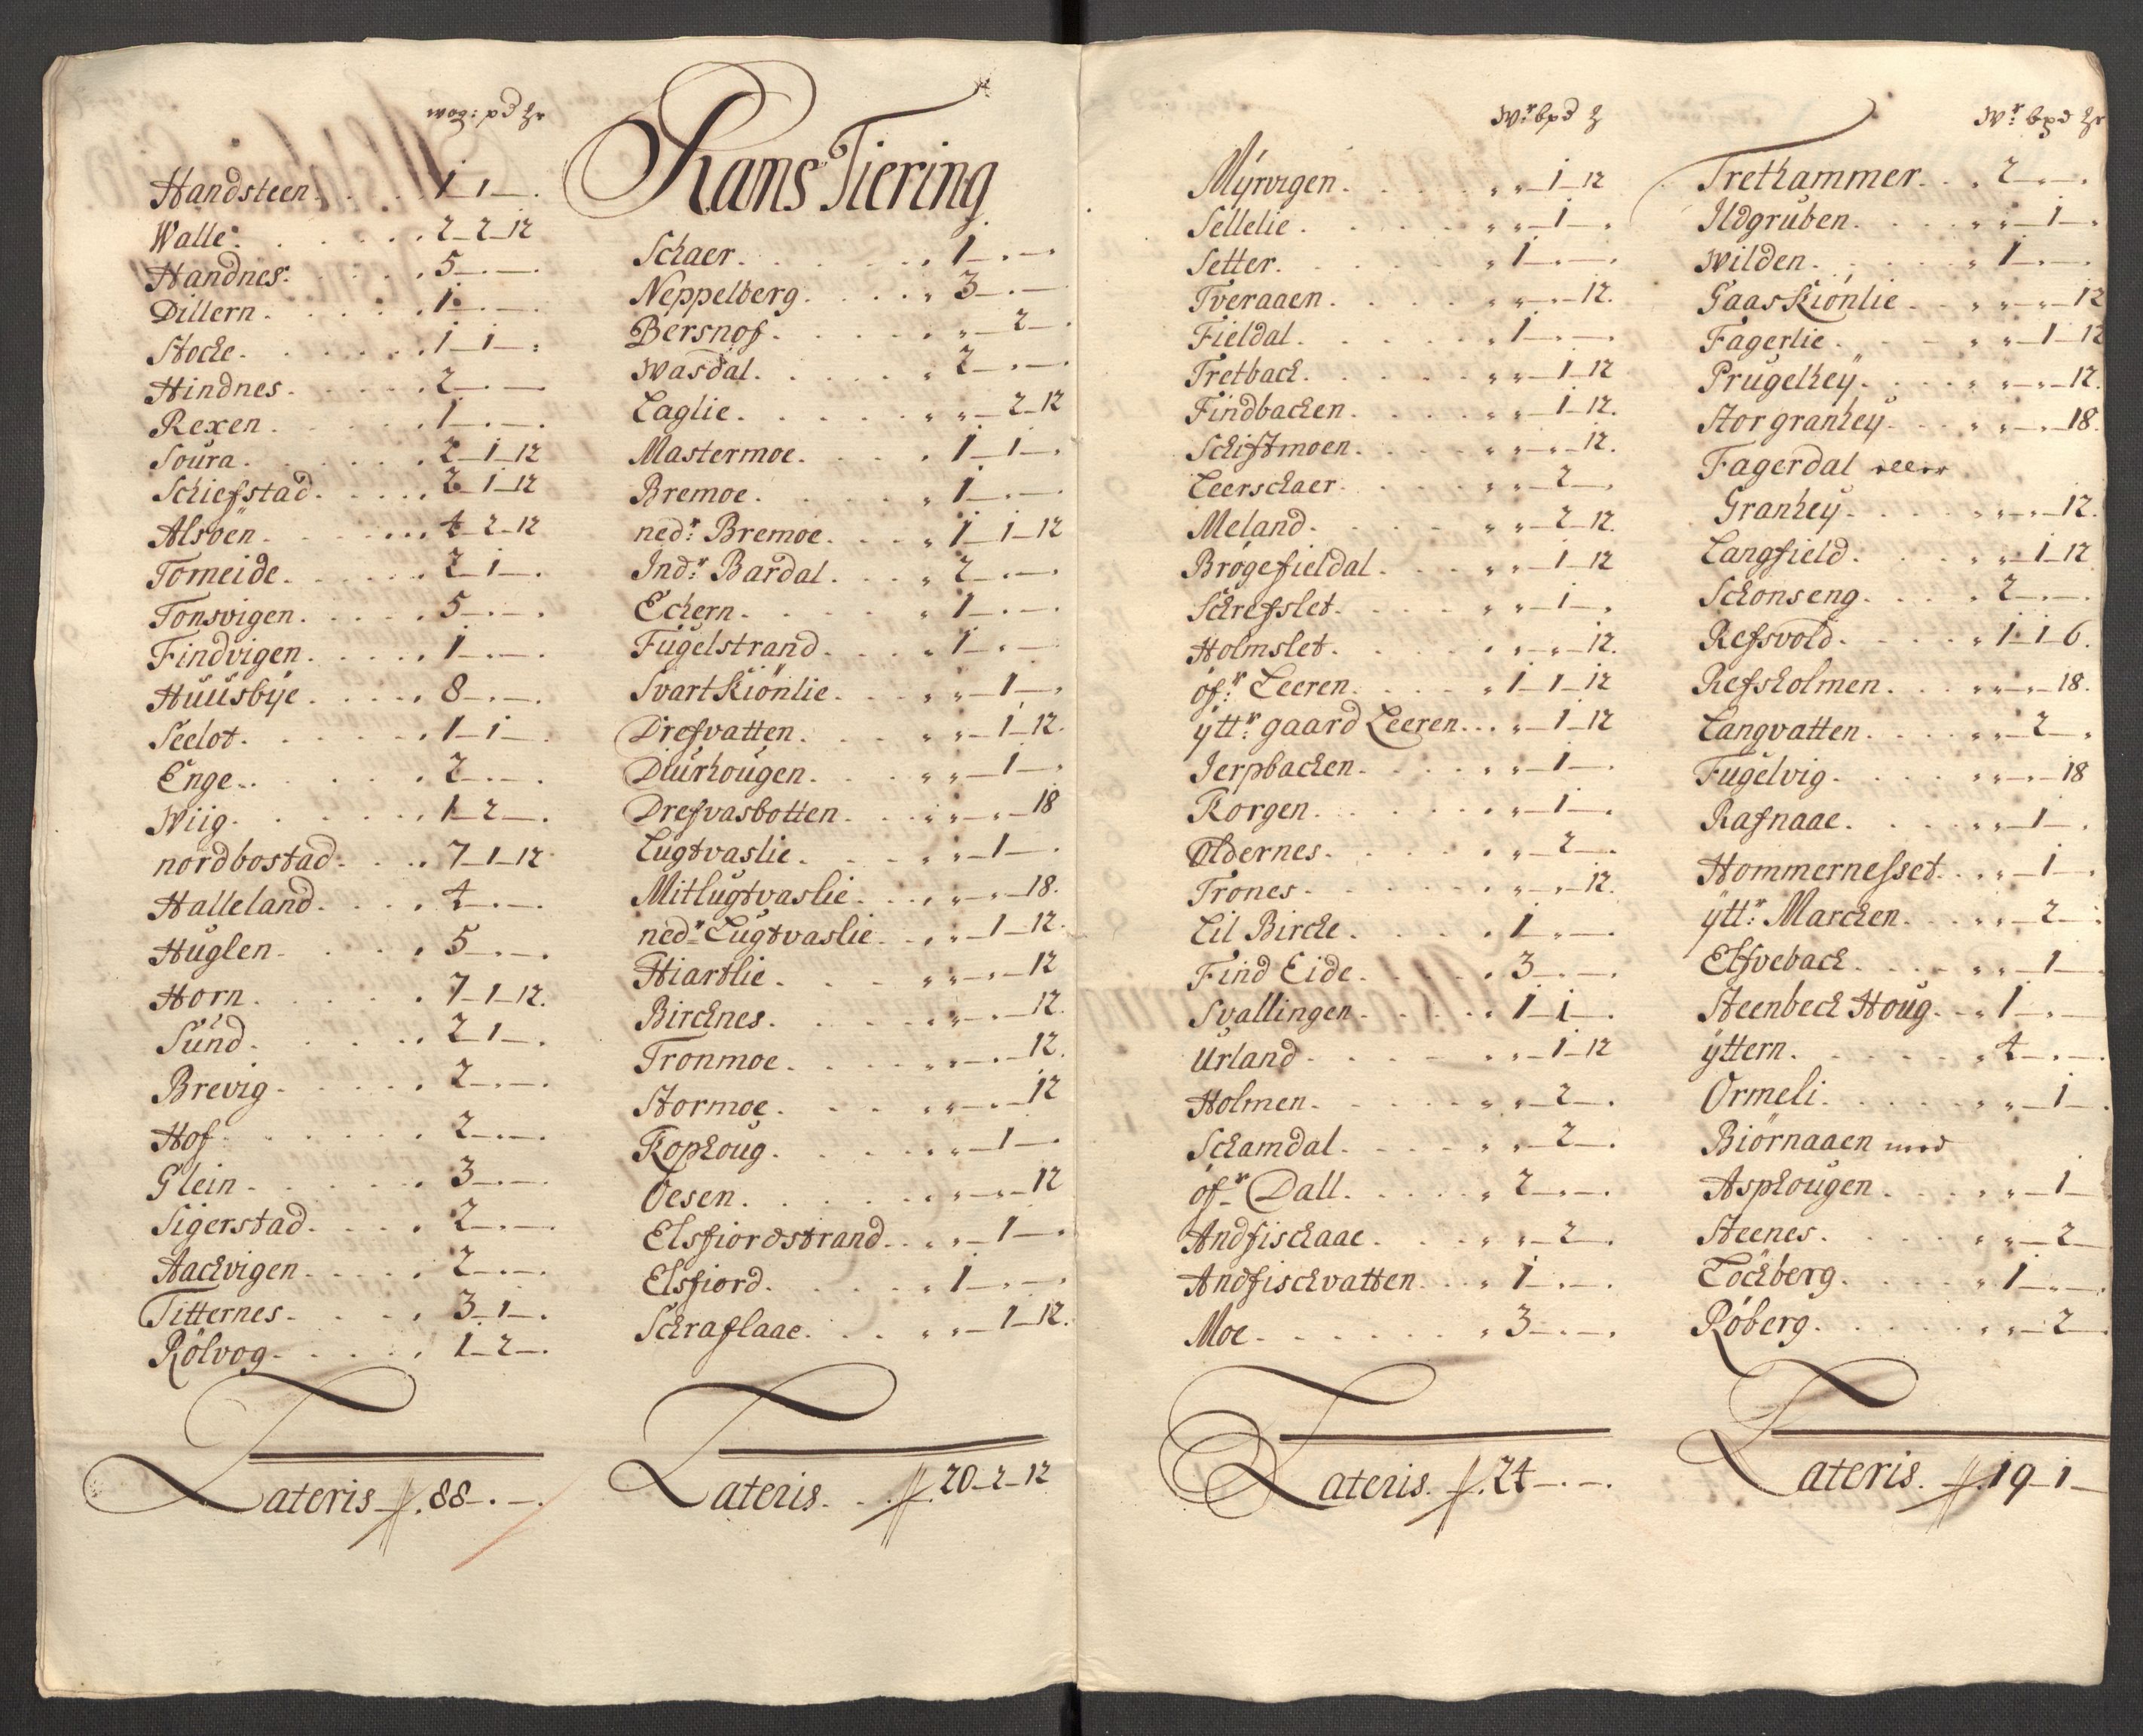 wog: pd
Handsteen. 1_1_.
Walle. 2_2_12
Handnes. 5_._.
Dillern. 1_._.
Stocke. 1_1_.
Hindnes. 2_._
Rexen. 1_._.
Soura. 2_1_12
Schiefstad. 2_1_12
Alsöen. 4_2_12
Tomeide. 2_1_.
Tonsvigen. 5_._.
Findvigen. 1_._.
Huusbye. 8_._.
Seelot. 1_1_
Enge. 2_._.
Wiig. 1_2_.
nordbostad. 7_1_12
Halleland. 4_._.
Huglen. 5_._.
Horn. 7_1_12.
Sund. 2_1_.
Brevig. 2_._.
Hof. 2_._.
Glein. 3_._.
Sigerstad. 2_._.
Aackvigen. 2_._.
Titternes. 3_1_.
Rölvog. 1_2_.
Lateris 88_._.
Rans Tiering
Schaer. 1_._
Neppelberg. 3_._
Bersnof. „_2_.
Wasdal. 2_._.
Laglie. „ „_2_12
Mastermoe. 1_1_.
Bremoe. 1_._
nedr: Bremoe. 1_1_12
Indr: Bardal. 2_._.
Echern. 1_._.
Fugelstrand. 1_._
Svartkiönlie. „ „_1_.
Drefvatten. „ „_1_12.
Diurhougen. „ „_1_.
Drefvasbotten. „ „_._18
Lugtvaslie. „ „_1_.
Mitlugtvaslie. „ „_._18.
nedr Lugtvaslie. „ „_1_12.
Hiartlie. „ „_._12
Bircknes. „ „_._12.
Tronmoe. „ „_._12.
Stormoe. „ „_._12
Kophoug. „ „_1_.
Oesen. „ „_._12
Elsfiordstrand. „ „_1_.
Elsfiord. 1_._.
Schraflaae. „ „_1_12.
Lateris. 20_2_12
Wr: bpd
Myrvigen. „ „_1_12
Sellelie. „ „_1_.
Setter. 1_._.
Tveraaen. „ „_._12.
Fieldal. 1_._.
Tretback. „ „_1_12
Findbacken. „ „_1_12.
Schistmoen. „ „_._12.
Leerschaer. „ „_2_.
Meland. „ „_2_12.
Brøgefieldal. „ „_1_12
Schrefslet. „ „_1_.
Holmslet. „ „_._12.
ofr: Leeren. 1_1_12
ÿttr: gaard Leeren. „_1_12
Jerpbacken. „ „_1_.
Korgen. „ „_1_.
Oldernes. „ „_2_.
Trones. „ „_._12.
Lil Bircke. 1_._
Find Eide. 3_._.
Svallingen. 1_1_.
Urland. „ „_1_12
Holmen. „ „_2_.
Schamdal. „ „_2_.
ofr Dall. 2_._.
Andfischaae. „ „_2_.
Andfischvatten. 1_._.
Moe. 3_._.
Lateris. 24_._.
Wr: bpd
Trethammer. 2_._.
Ildgruben. „ „_1_.
Wilden. 1_._.
Gaaskiönlie. „ „_._12
Fagerlie. „ „_1_12
Prugelheÿ. „ „_._12.
Storgranheÿ. „ „_._18.
Fagerdal eller
Granheÿ. „ „_._12.
Langfield. „ „_1_12
Schonseng. 2_._.
Refsvold. 1_1_6.
Refsholmen. „ „_._18.
Langvatten. „ „_2_.
Fugelvig. „ „_._18
Rafnaae. „ „_1_.
Hommernesset. „ „_1_.
ÿttr: Marchen. „ „_2_.
Elfveback. „ „_1_.
Steenbeck Houg. 1_._
ÿttern. 4_._.
Ormeli. „ „_1_.
Biörnaaen med
Asphougen. „ „_1_
Steenes. „ „_2_
Löckberg. 1_._.
Röberg. „ „_2_.
Lateris. 19_1_